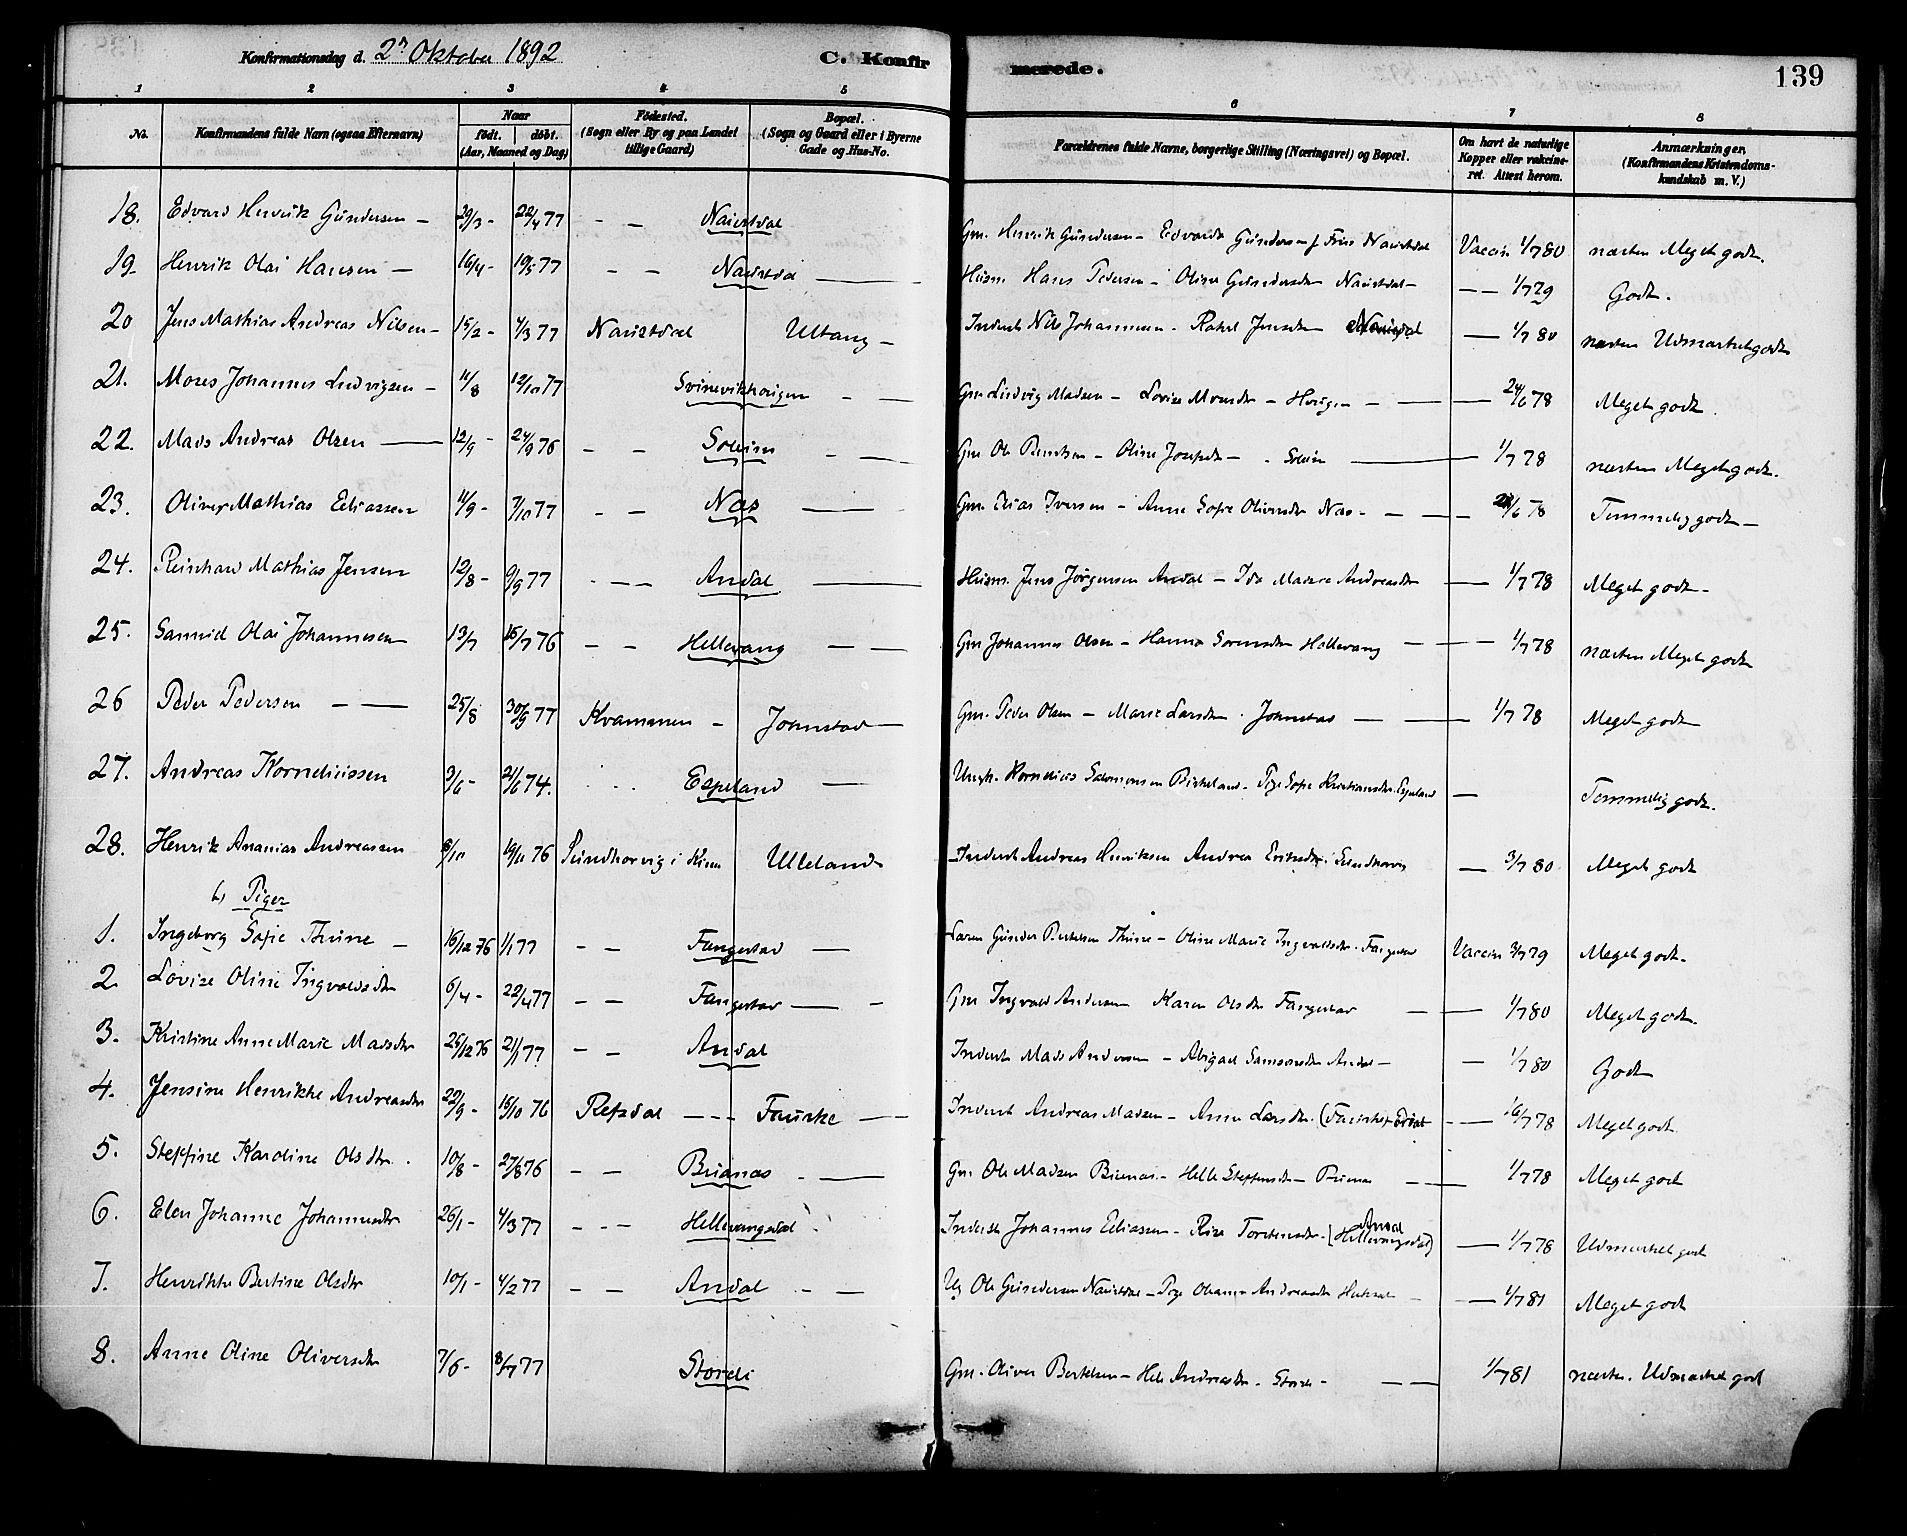 Konfirmationsdag d. 2den Oktober 1892 C. Konfirmerede. 139
1 2 3 4 5 6 7 8
No. Konfirmandens fulde Navn (ogsaa Efternavn) Naar født. døbt. (Aar, Maaned og Dag) Fødested. (Sogn eller By og paa Landet tillige Gaard) Bopæl. (Sogn og Gaard eller i Byerne Gade og Hus-No. Forældrenes fulde Navne, borgerlige Stilling (Næringsvei) og Bopæl. Om havt de naturlige Kopper eller vakcineret. Attest herom. Anmærkninger. (Konfirmandens Kristendomskundskab m. V.)
18. Edvard Henrik Gundersen – 29/3 – 22/4 77 – – Naustdal Gm. Henrik Gundersen – Edvarda Naustdal Vaccin 1/7 80 næsten Meget godt.
19. Henrik Olai Hansen – 16/4 – 19/5 77 – – Naustdal — Husm. Hans Pedersen – Oline Gundersdtr Naustdal – – – 1/7 79 Godt.
20 Jens Mathias Andreas Nilsen – 15/2 – 4/3 77 Naustdal Ultang – Inderst Nils Johannesen – Rakel Jensdtr — 1/7 80 næsten Udmærket godt
21. Moses Johannes Ludvigsen – 11/8 12/10 77 Svinevikhougen – — Gm. Ludvig Madsen – Lovise Monsdtr – Hougen – — — 24/6 78 Meget godt.
22. Mads Andreas Olsen — 12/9 – 24/9 76 – – Soleim – — Gm Ole Bendtsen – Oline Josefsdtr – Soleim — 1/7 78 næsten Meget godt.
23. Oliver Mathias Eliassen 11/9 – 7/10 77 – – Næs — Gm. Elias Iversen – Anne Sofie Oliversdtr Næs – – — 24/6 78 Temmelig godt –
24. Reinhard Mathias Jensen 12/8 – 9/9 77 – – – Andal — Husm. Jens Jørgensen Andal – Ida Andreasdtr — 1/7 78 Meget godt –
25. Samuel Olai Johannesen 13/7 15/7 76 – – Hellevang – — Gm Johannes Olsen – Hanna Sorensdtr Hellevang — — 1/7 78 næsten Meget godt
26 Peder Pedersen – — 25/8 30/9 77 Kvammen – Johnstad – Gm. Peder Olsen – Marie Larsdtr – Johnstad — — 1/7 78 Meget godt
27. Andreas Korneliussen 3/6 – 21/6 74. Espeland — Ungk. Kornelius Salomonsen Birkeland – Pige Sofie Kristiansdtr. Espeland — Temmelig godt.
28. Henrik Ananias Andreassen 8/10 19/11 76 i Kinn Ulleland Inderst Andreas Henriksen Andrea Eriksdtr — 3/7 80 Meget godt
b, Piger
1. Ingeborg Sofie Thune – 16/12 76 1/1 77 – – Fangestad — Gunder Bertelsen Thune – Oline Marie Ingvaldsdtr. Fangestad Vaccin 3/7 79 Meget godt.
2. Lovise Oline Ingvaldsdtr 6/4 – 22/4 77 – – Fangestad — – Gm Ingvald Andersen Karen Olsdtr Fangestad — — 1/7 80 Meget godt.
3. Kristine Anne Marie Madsdtr 25/12 76 21/1 77 – – Andal Inderst Mads Andersen – Abigael Samsonsdtr Andal – — 1/7 80 Godt
4. Jensine Henrikke Andreasdtr 22/9 – 15/10 76 Refsdal – – – Fauske — Inderst Andreas Madsen – Anne Larsdtr. – — 16/7 78 Meget godt.
5. Steffine Karoline Olsdtr. 10/8 – 27/8 76 – – Bruanæs – — Gm Ole Madsen – Helle Steffensdtr – — — 1/7 78 Meget godt
6. Elen Johanne Johannesdtr 26/1 – 4/3 77 – – – Hellevangsdal Inderst Johannes Eliassen – Torstensdtr – (Hellevangsdal) Andal — 1/7 78 Udmærket godt
7. Henrikke Bertine Olsdtr 10/1 – 4/2 77 – – Andal – – Ug Ole Gundersen Naustdal – Pige Andreasdtr – – — 1/7 81 Meget godt
8. Anne Oline Oliversdtr 7/6 – 8/7 77 Storeli Gm. Oliver Bertelsen – Andreasdtr – – – 1/7 81 næsten Udmærket godt